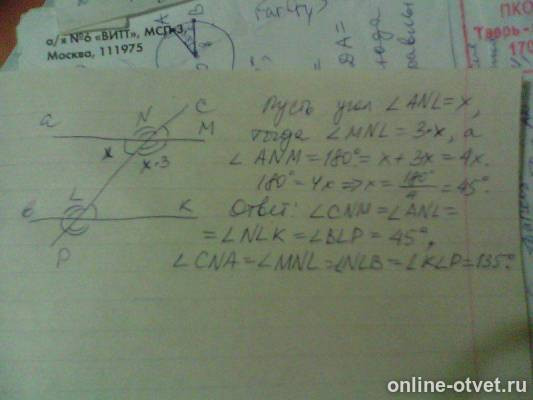 а/я №6 «ВИП», МСП-3,
Москва, 111975
A
B
DA=
ПКО
Тверь-
170
Пусть угол ∠ANL=x,
тогда ∠MNL=3·x, а
∠ANM=180°=x+3x=4x.
180°=4x⇒x=180°/4=45°.
Ответ: ∠CNM=∠ANL=
=∠NLK=∠BLP=45°,
∠CNA=∠MNL=∠NLB=∠KLP=135°.
a
N
C
M
x
x·3
L
в
K
P
online-otvet.ru